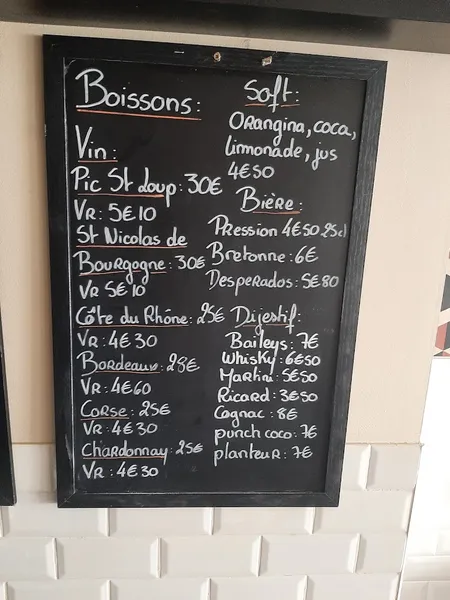 Boissons:
Vin:
Pic St Loup: 30€
VR: 5€10
St Nicolas de
Bourgogne: 30€
VR 5€10
Côte du Rhône: 25€
VR: 4€30
Bordeaux: 28€
VR: 4€60
Corse: 25€
VR: 4€30
Chardonnay: 25€
VR: 4€30
Soft:
Orangina, coca,
limonade, jus
4€50
Bière:
Pression 4€50 25cl
Bretonne: 6€
Desperados: 5€80
Digestif:
Baileys: 7€
Whisky: 6€50
Martini: 5€50
Ricard: 3€50
Cognac: 8€
punch coco: 7€
planteur: 7€